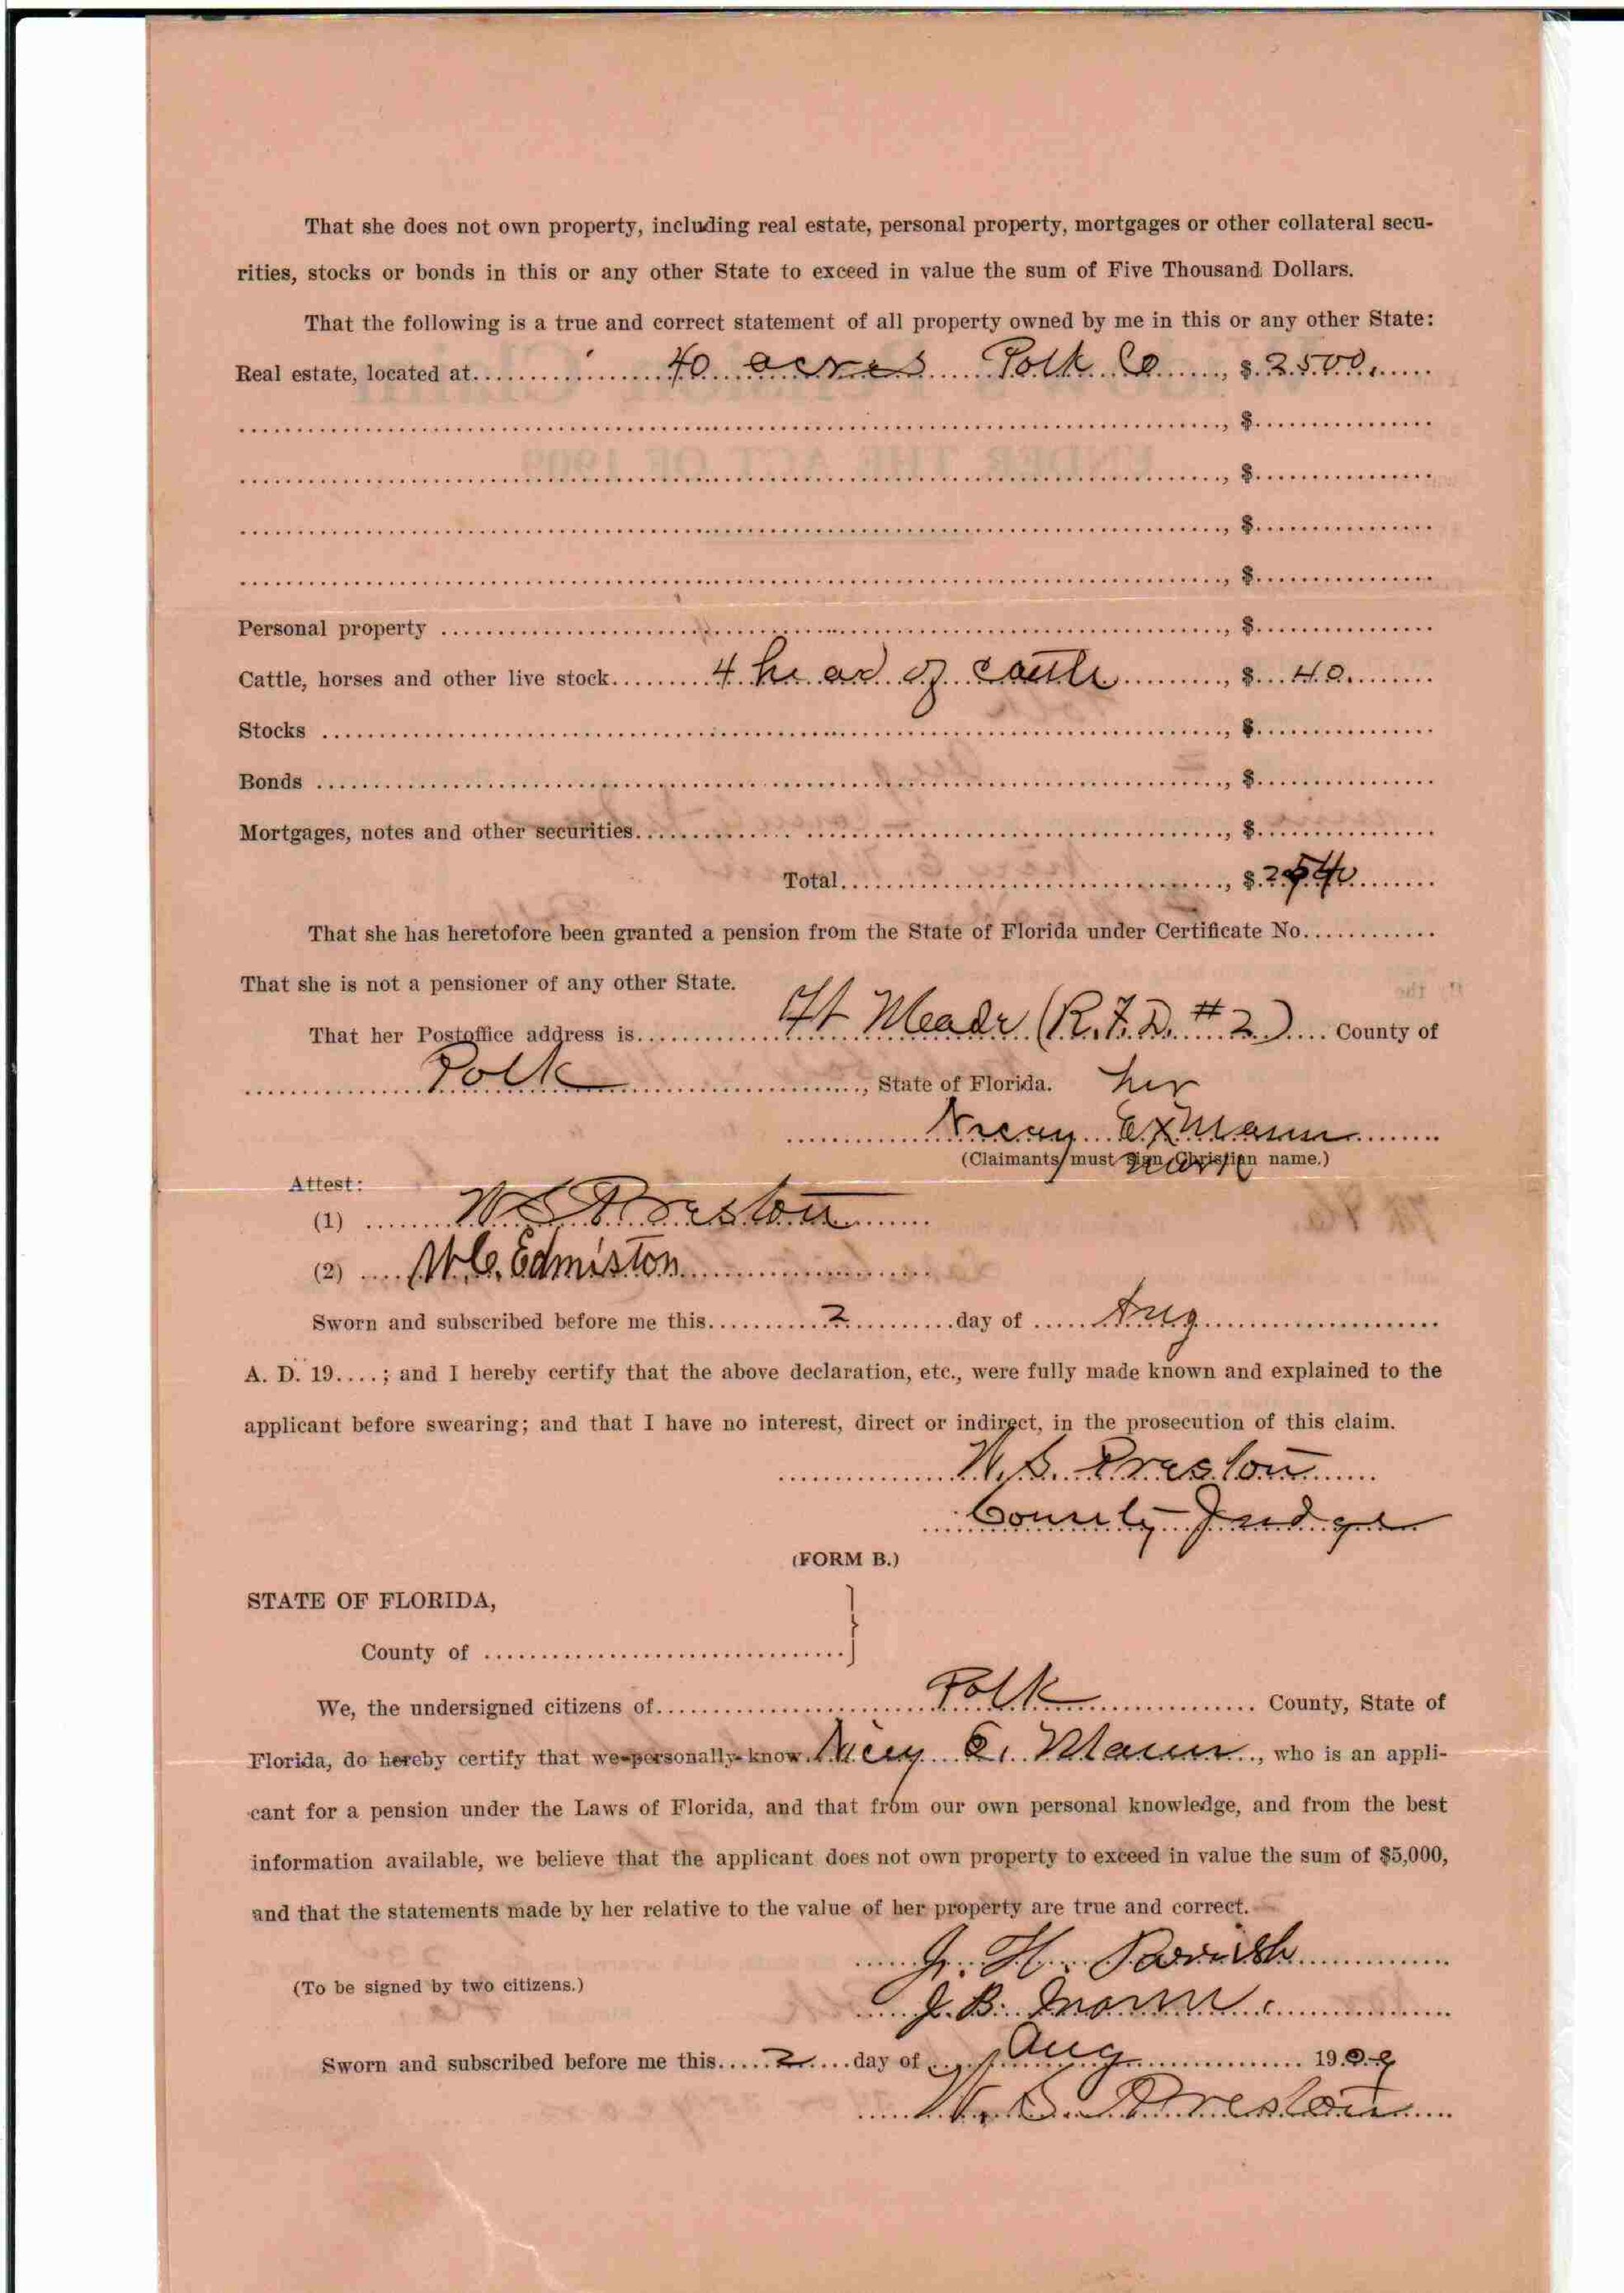 That she does not own property, including real estate, personal property, mortgages or other collateral secu-
rities, stocks or bonds in this or any other State to exceed in value the sum of Five Thousand Dollars.
That the following is a true and correct statement of all property owned by me in this or any other State:
Real estate, located at 40 acres Polk Co, $2500.
, $
, $
, $
, $
Personal property , $
Cattle, horses and other live stock 4 head of cattle, $ 40.
Stocks , $
Bonds , $
Mortgages, notes and other securities , $
Total , $
That she has heretofore been granted a pension from the State of Florida under Certificate No.
That she is not a pensioner of any other State.
That her Postoffice address is Ft Meade (R.F.D. #2) County of
Polk, State of Florida. her
Nicey E x Mann
(Claimants must sign Christian name.) mark
Attest:
(1) W S Preston
(2) W.C. Edmiston
Sworn and subscribed before me this 2 day of Aug
A. D. 19....; and I hereby certify that the above declaration, etc., were fully made known and explained to the
applicant before swearing; and that I have no interest, direct or indirect, in the prosecution of this claim.
W. S. Preston
County Judge
(FORM B.)
STATE OF FLORIDA,
County of
We, the undersigned citizens of Polk County, State of
Florida, do hereby certify that we personally know Nicey E. Mann, who is an appli-
cant for a pension under the Laws of Florida, and that from our own personal knowledge, and from the best
information available, we believe that the applicant does not own property to exceed in value the sum of $5,000,
and that the statements made by her relative to the value of her property are true and correct.
J. H. Parrish
(To be signed by two citizens.)
J. B. Mann
Sworn and subscribed before me this 2 day of Aug 1909
W. S. Preston